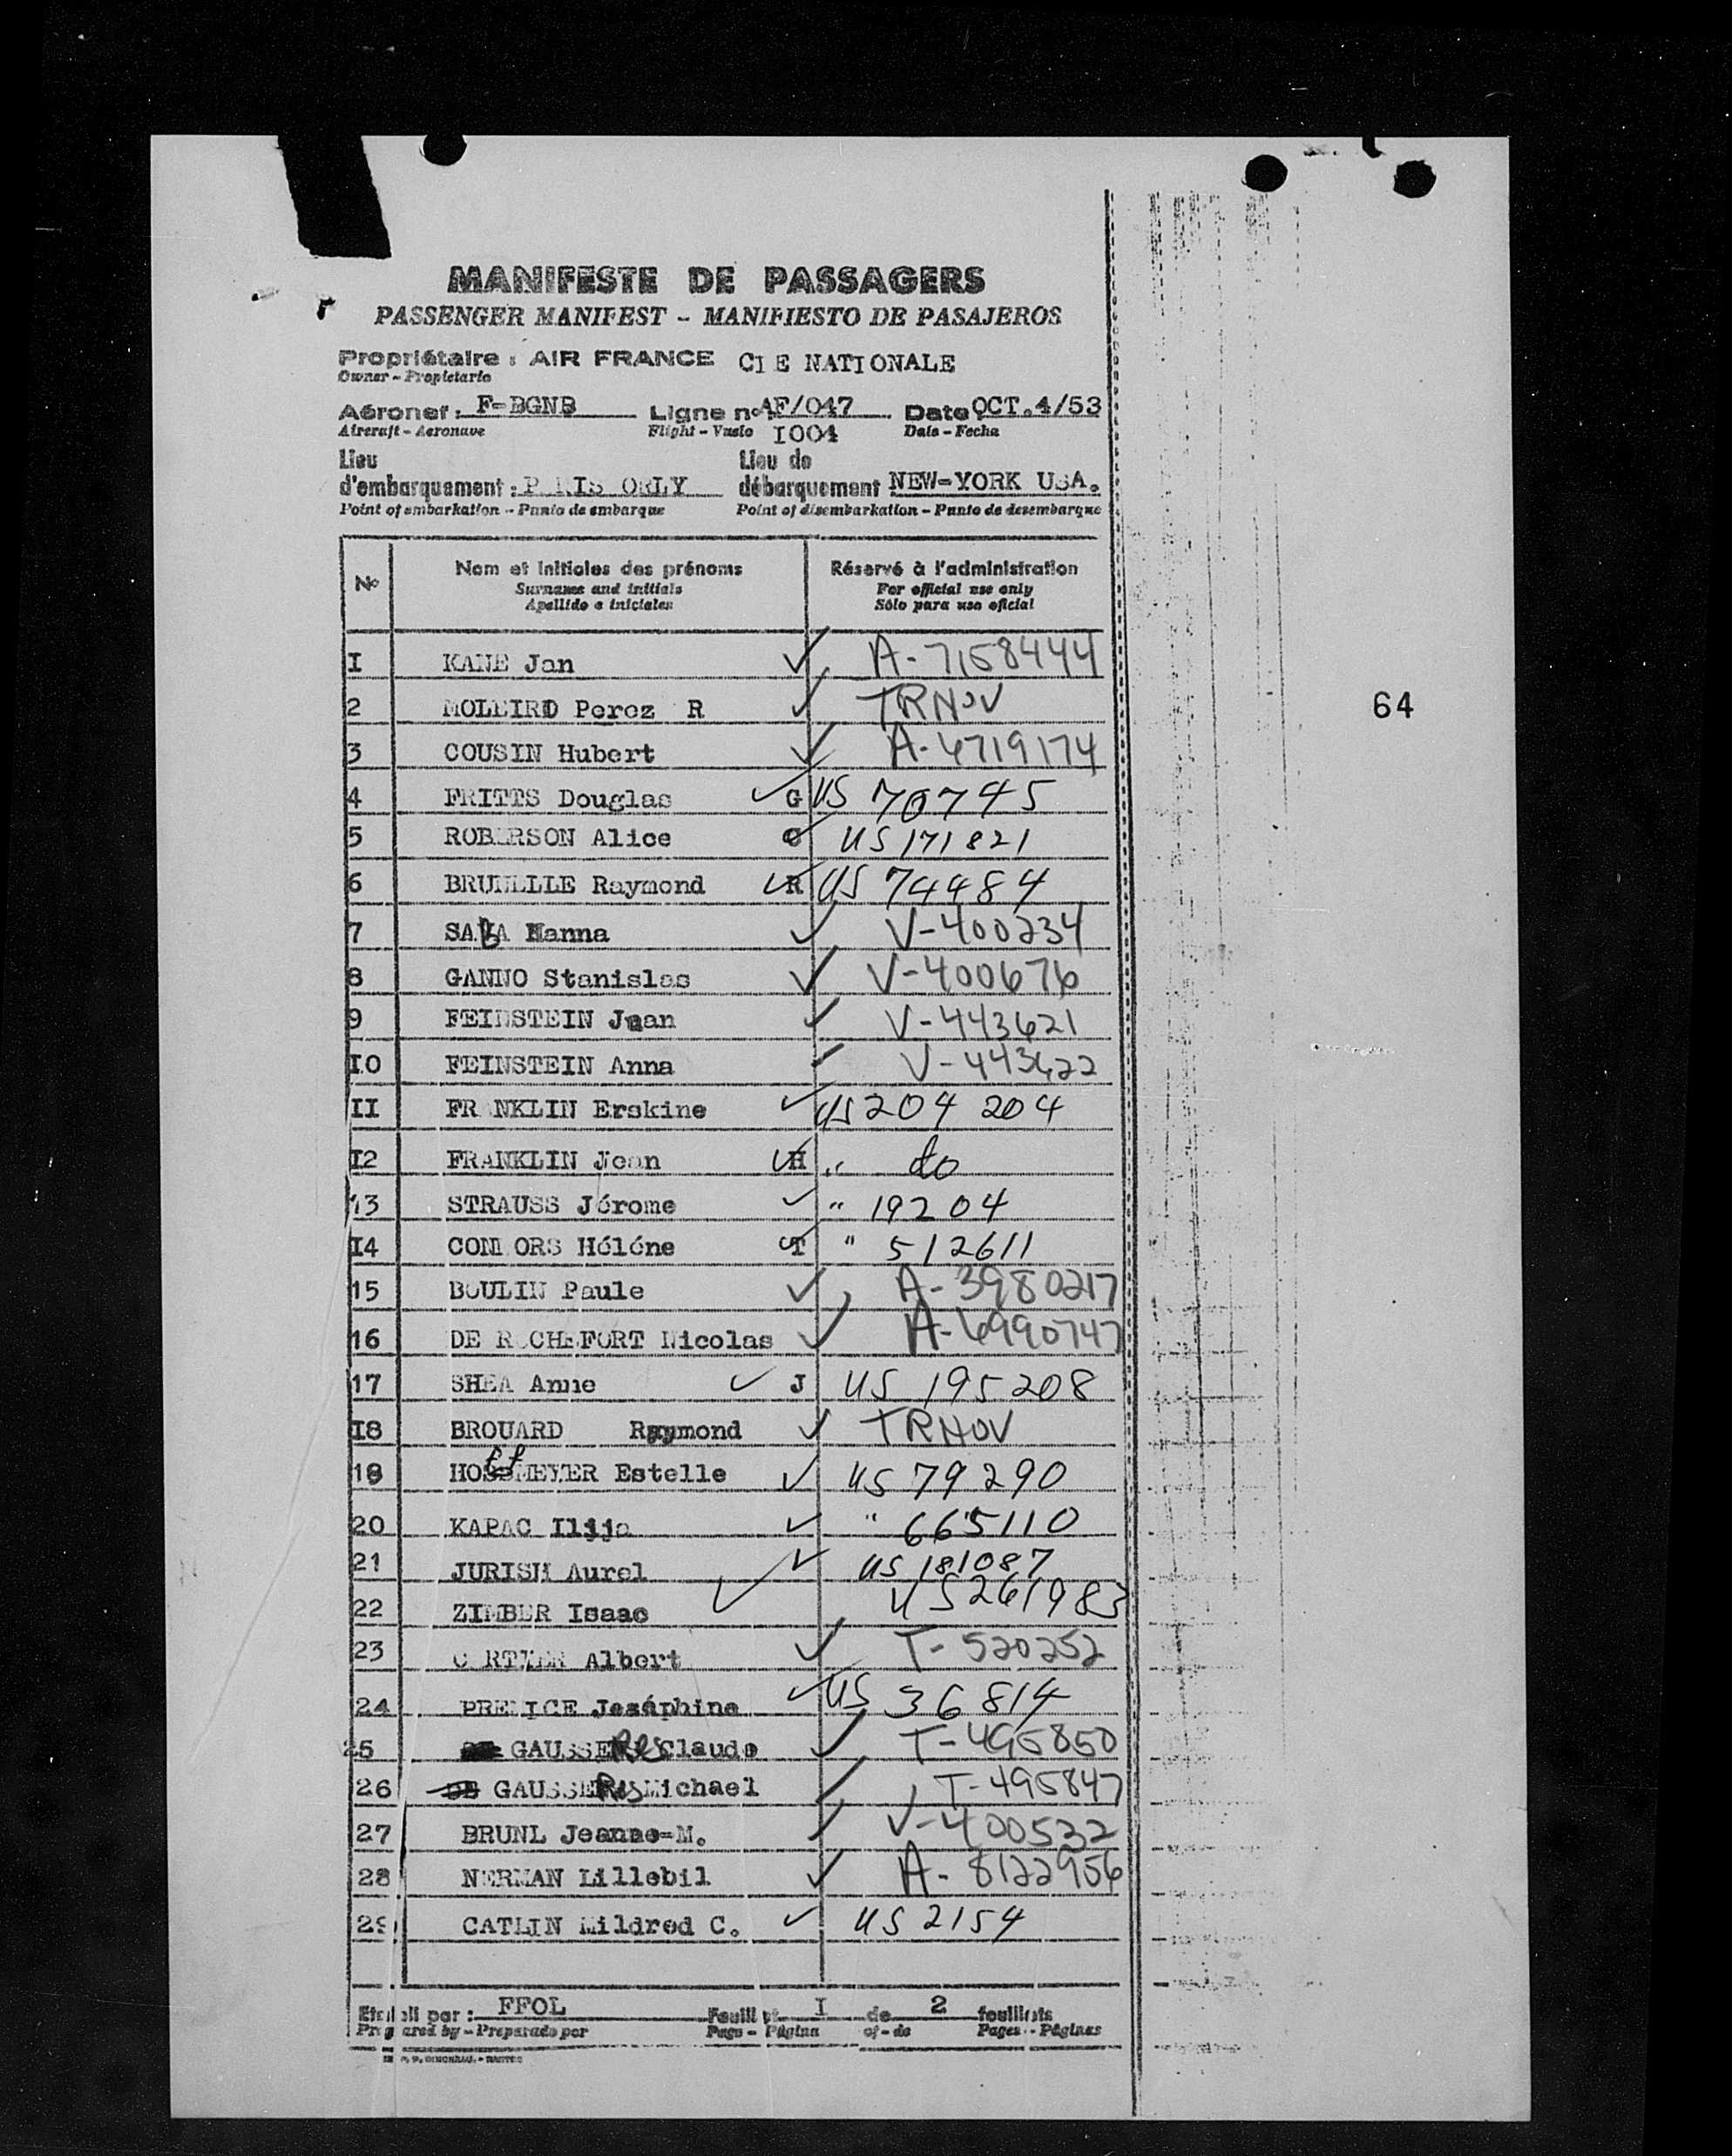 MANIFESTE DE PASSAGERS
PASSENGER MANIFEST - MANIFIESTO DE PASAJEROS
Propriétaire : AIR FRANCE CIE NATIONALE
Owner - Propietario
Aéronef : F-BGNB Ligne no AF/047 Date OCT.4/53
Aircraft - Aeronave Flight - Vuelo I004 Date - Fecha
Lieu Lieu de
d'embarquement : P RIS ORLY débarquement NEW-YORK USA.
Point of embarkation - Punto de embarque Point of disembarkation - Punto de desembarque
No Nom et initiales des prénoms Réservé à l'administration
Surname and initials For official use only
Apellido e iniciales Sólo para uso oficial
I KANE Jan A-7158444
2 MOLEIRO Perez R TRNOV
3 COUSIN Hubert A-6719174
4 FRITTS Douglas G US 70745
5 ROBERSON Alice C US 171821
6 BRUNELLE Raymond R US 74484
7 SABA Hanna V-400234
8 GANNO Stanislas V-400676
9 FEINSTEIN Juan V-443621
IO FEINSTEIN Anna V-443622
II FRANKLIN Erskine US 204 204
I2 FRANKLIN Jean H " do
13 STRAUSS Jérome " 19204
I4 CONNORS Héléne T " 512611
15 BOULIN Paule A-3980217
16 DE ROCHEFORT Nicolas A-6990747
17 SHEA Anne J US 195208
I8 BROUARD Raymond TRNOV
19 HOFFMEYER Estelle US 79290
20 KAPAC Ilija " 665110
21 JURISH Aurel US 181087
22 ZIMBER Isaac US 261983
23 Albert T-520252
24 PRENICE Joséphine US 36814
25 GAUSSERES Claude T-495850
26 DE GAUSSERES Michael T-495847
27 BRUNL Jeanne-M. V-400532
28 NERMAN Lillebil A-8122956
29 CATLIN Mildred C. US 2154
Etabli par : FFOL Feuillet I de 2 feuillets
Prepared by - Preparado por Page - Página of - de Pages - Páginas
64